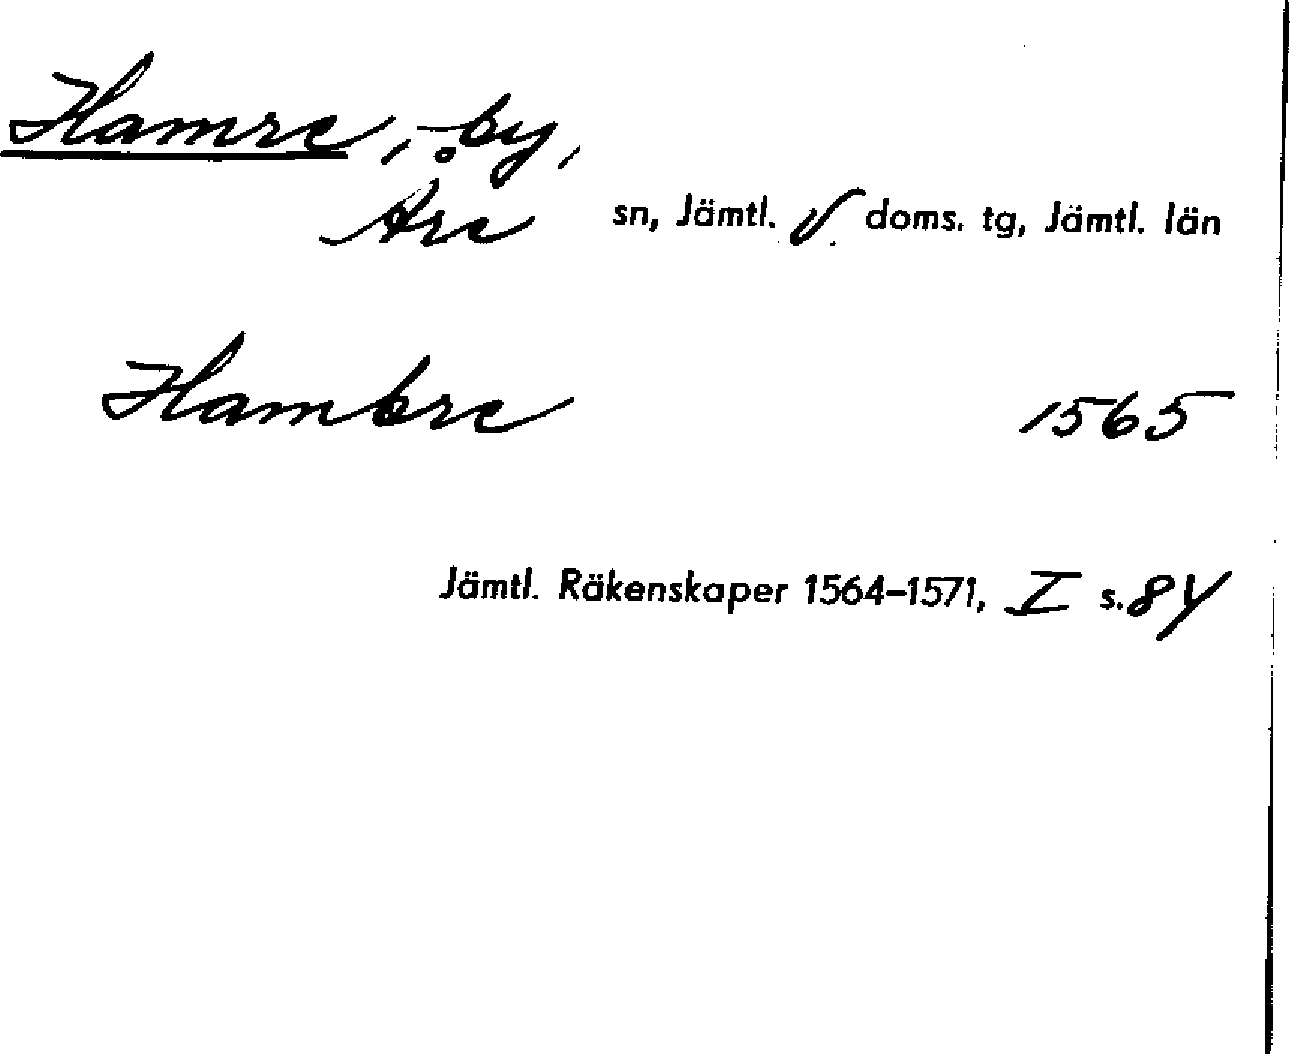 Hamre, by,
Åre sn, Jämtl. V. doms. tg, Jämtl. län
Hambre 1565
Jämtl. Räkenskaper 1564–1571, I s. 84